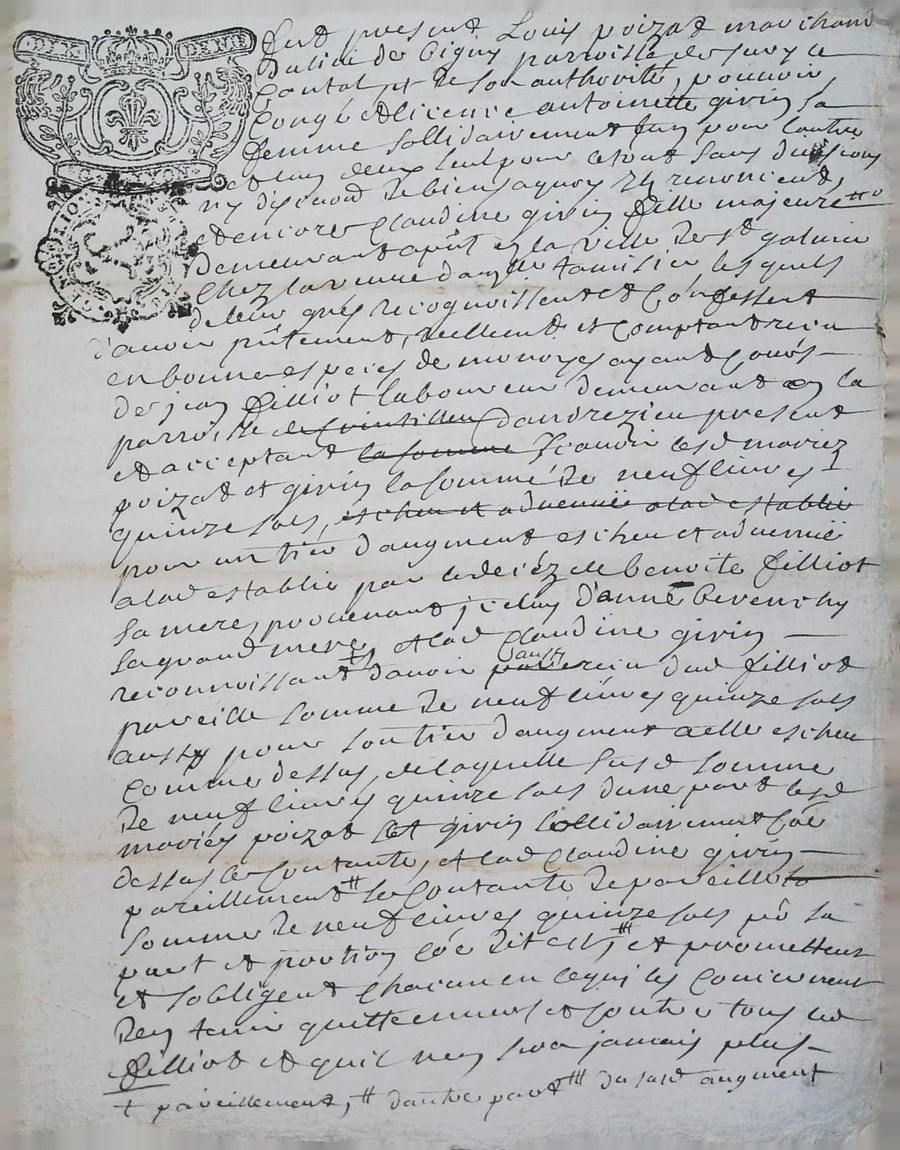 DIX DENIE
G. LYON
Fut present Louis poizat marchand
du lieu de Cigny parroisse de Sury le
Contal et de son authorité, pouvoir
Congé et licence antoinette givin sa
femme sollidairement l'un pour lautre
et un deux seul pour le tout sans division
ny discution de biens a quoy ils renoncent,
et encores Claudine givin fille majeure
demeurant apñt en la ville de st galmier
Chez la veuve tamisier lesquels
de leur gré recognoissent et Confessent
d'avoir pñtement, reellement et Comptant receu
en bonnes especes de monoyes ayant Cours
de jean filliot laboureur demeurant en la
parroisse de dandrezieu present
et acceptant la somme Scavoir lesd mariez
poizat et givin la somme de neuf livres
quinze sols, escheu et advenue a lad establie
pour un tier daugment escheu et advenue
a lad establie par le decéz de benoite filliot
sa mere, provenant jceluy d'anne
sa grand mere, et lad Claudine givin
reconnoissant davoir aussy receu dud filliot
pareille somme de neuf livres quinze sols
aussy pour son tier daugment a elle escheu
Comme dessus, de laquelle susd somme
de neuf livres quinze sols dune part lesd
mariéz poizat et givin sollidairement Cõe
dessus se Contante, et lad Claudine givin
pareillement se Contante de pareille
somme de neuf livres quinze sols pr sa
part et portion Cõe dit est, et promettent
et sobligent Chacun en ce qui les Concernent
den tenir quitte envers et contre tous led
filliot et quil nen sera jamais plus
+ pareillement, # dautre part ## du susd augment